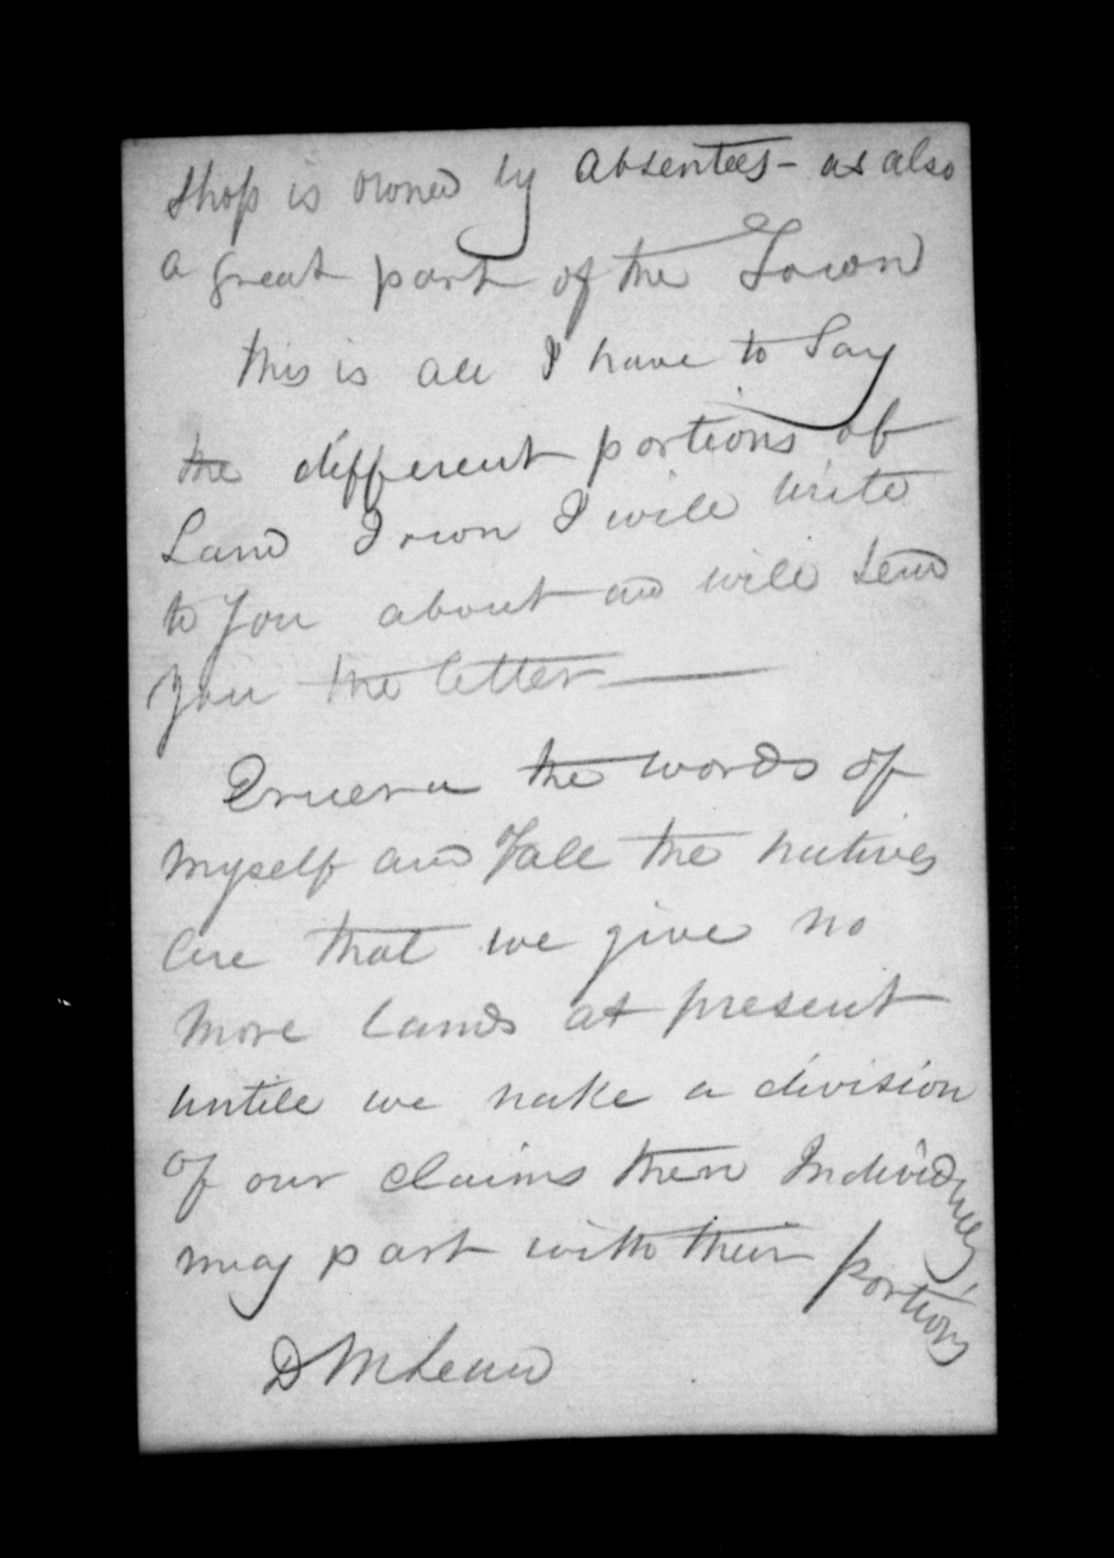 Shop is owned by absentees - as also
a great part of the Town
this is all I have to say
the different portions of
Land I own I will write
to you about and will send
you the letter
the words of
myself and of all the natives
are that we give no
more lands at present
untill we make a division
of our claims then Individuals
may part with their portions
D McLean